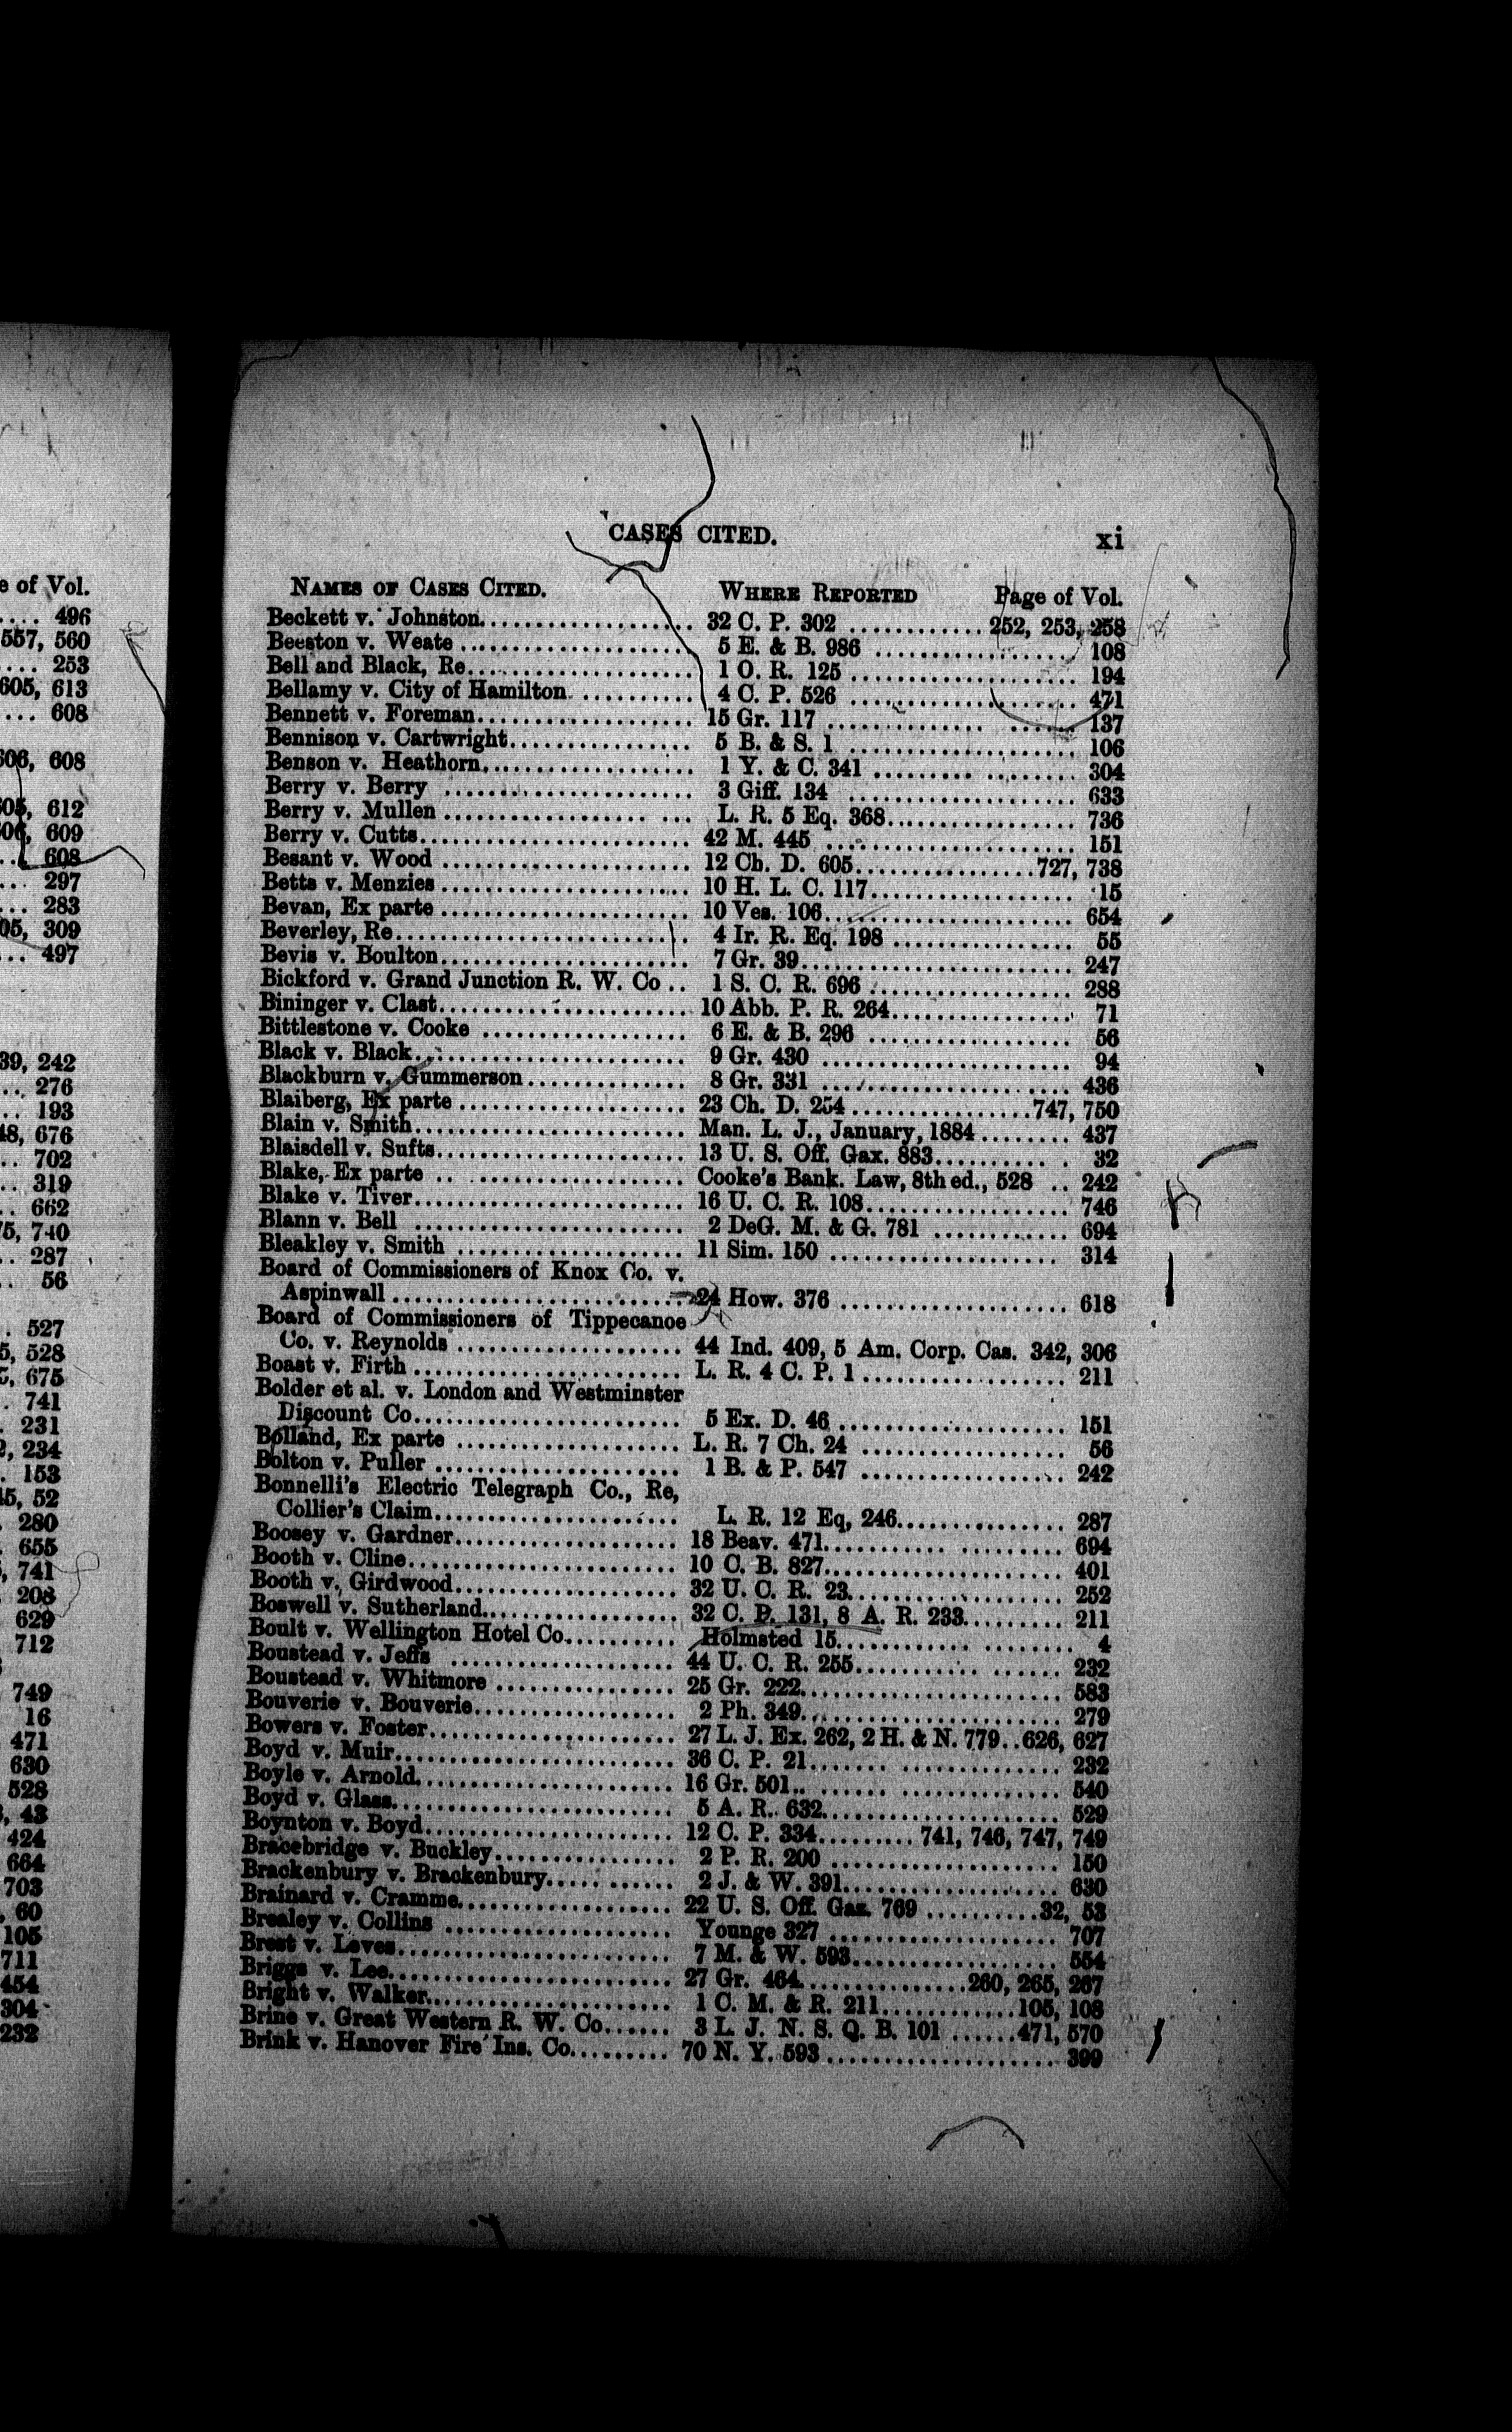 CASES CITED. xi
NAMES OF CASES CITED. WHERE REPORTED Page of Vol.
Beckett v. Johnston.................. 32 C. P. 302 ............ 252, 253, 258
Beeston v. Weate ................... 5 E. & B. 986 ................. 108
Bell and Black, Re................... 1 O. R. 125 ................... 194
Bellamy v. City of Hamilton .......... 4 C. P. 526 ................... 471
Bennett v. Foreman.................. 15 Gr. 117 ................... 137
Bennison v. Cartwright............... 5 B. & S. 1 ................... 106
Benson v. Heathorn.................. 1 Y. & C. 341 ................. 304
Berry v. Berry ..................... 3 Giff. 134 ................... 633
Berry v. Mullen .................... L. R. 5 Eq. 368................ 736
Berry v. Cutts....................... 42 M. 445 ..................... 151
Besant v. Wood ..................... 12 Ch. D. 605................727, 738
Betts v. Menzies ..................... 10 H. L. C. 117................. 15
Bevan, Ex parte ..................... 10 Ves. 106..................... 654
Beverley, Re......................... 4 Ir. R. Eq. 198 ............... 55
Bevis v. Boulton..................... 7 Gr. 39....................... 247
Bickford v. Grand Junction R. W. Co .. 1 S. C. R. 696 ................. 288
Bininger v. Clast..................... 10 Abb. P. R. 264............... 71
Bittlestone v. Cooke ................. 6 E. & B. 296 ................. 56
Black v. Black....................... 9 Gr. 430 ..................... 94
Blackburn v. Gummerson............. 8 Gr. 331 ..................... 436
Blaiberg, Ex parte ................... 23 Ch. D. 254 ...............747, 750
Blain v. Smith....................... Man. L. J., January, 1884........ 437
Blaisdell v. Sufts..................... 13 U. S. Off. Gax. 883.......... . 32
Blake, Ex parte .. ................. Cooke's Bank. Law, 8th ed., 528 .. 242
Blake v. Tiver....................... 16 U. C. R. 108................. 746
Blann v. Bell ....................... 2 DeG. M. & G. 781 ............ 694
Bleakley v. Smith ................... 11 Sim. 150 ................... 314
Board of Commissioners of Knox Co. v.
Aspinwall ......................... 24 How. 376 ................... 618
Board of Commissioners of Tippecanoe
Co. v. Reynolds ................... 44 Ind. 409, 5 Am. Corp. Cas. 342, 306
Boast v. Firth ....................... L. R. 4 C. P. 1 ................. 211
Bolder et al. v. London and Westminster
Discount Co....................... 5 Ex. D. 46 ................... 151
Bolland, Ex parte ................... L. R. 7 Ch. 24 ................. 56
Bolton v. Puller ..................... 1 B. & P. 547 ................. 242
Bonnelli's Electric Telegraph Co., Re,
Collier's Claim..................... L. R. 12 Eq, 246.............. 287
Boosey v. Gardner................... 18 Beav. 471........... ......... 694
Booth v. Cline....................... 10 C. B. 827................... 401
Booth v. Girdwood................... 32 U. C. R. 23................. 252
Boswell v. Sutherland................. 32 C. P. 131, 8 A. R. 233........ 211
Boult v. Wellington Hotel Co.......... Holmsted 15........... ........ 4
Boustead v. Jeffs ................... 44 U. C. R. 255.......... ...... 232
Boustead v. Whitmore ............... 25 Gr. 222..................... 583
Bouverie v. Bouverie................. 2 Ph. 349..................... 279
Bowers v. Foster..................... 27 L. J. Ex. 262, 2 H. & N. 779..626, 627
Boyd v. Muir....................... 36 C. P. 21....... ............. 232
Boyle v. Arnold..................... 16 Gr. 501.. ................... 540
Boyd v. Glass....................... 5 A. R. 632................... 529
Boynton v. Boyd..................... 12 C. P. 334......... 741, 746, 747, 749
Bracebridge v. Buckley............... 2 P. R. 200 ................... 150
Brackenbury v. Brackenbury........... 2 J. & W. 391................. 630
Brainard v. Cramme................. 22 U. S. Off. Gaz. 769 ..........32, 53
Brealey v. Collins ................... Younge 327 ................... 707
Brest v. Loves....................... 7 M. & W. 593................. 554
Briggs v. Lee....................... 27 Gr. 464..............260, 265, 267
Bright v. Walker..................... 1 C. M. & R. 211............105, 108
Brine v. Great Western R. W. Co...... 3 L. J. N. S. Q. B. 101 ......471, 570
Brink v. Hanover Fire Ins. Co......... 70 N. Y. 593 ................... 399